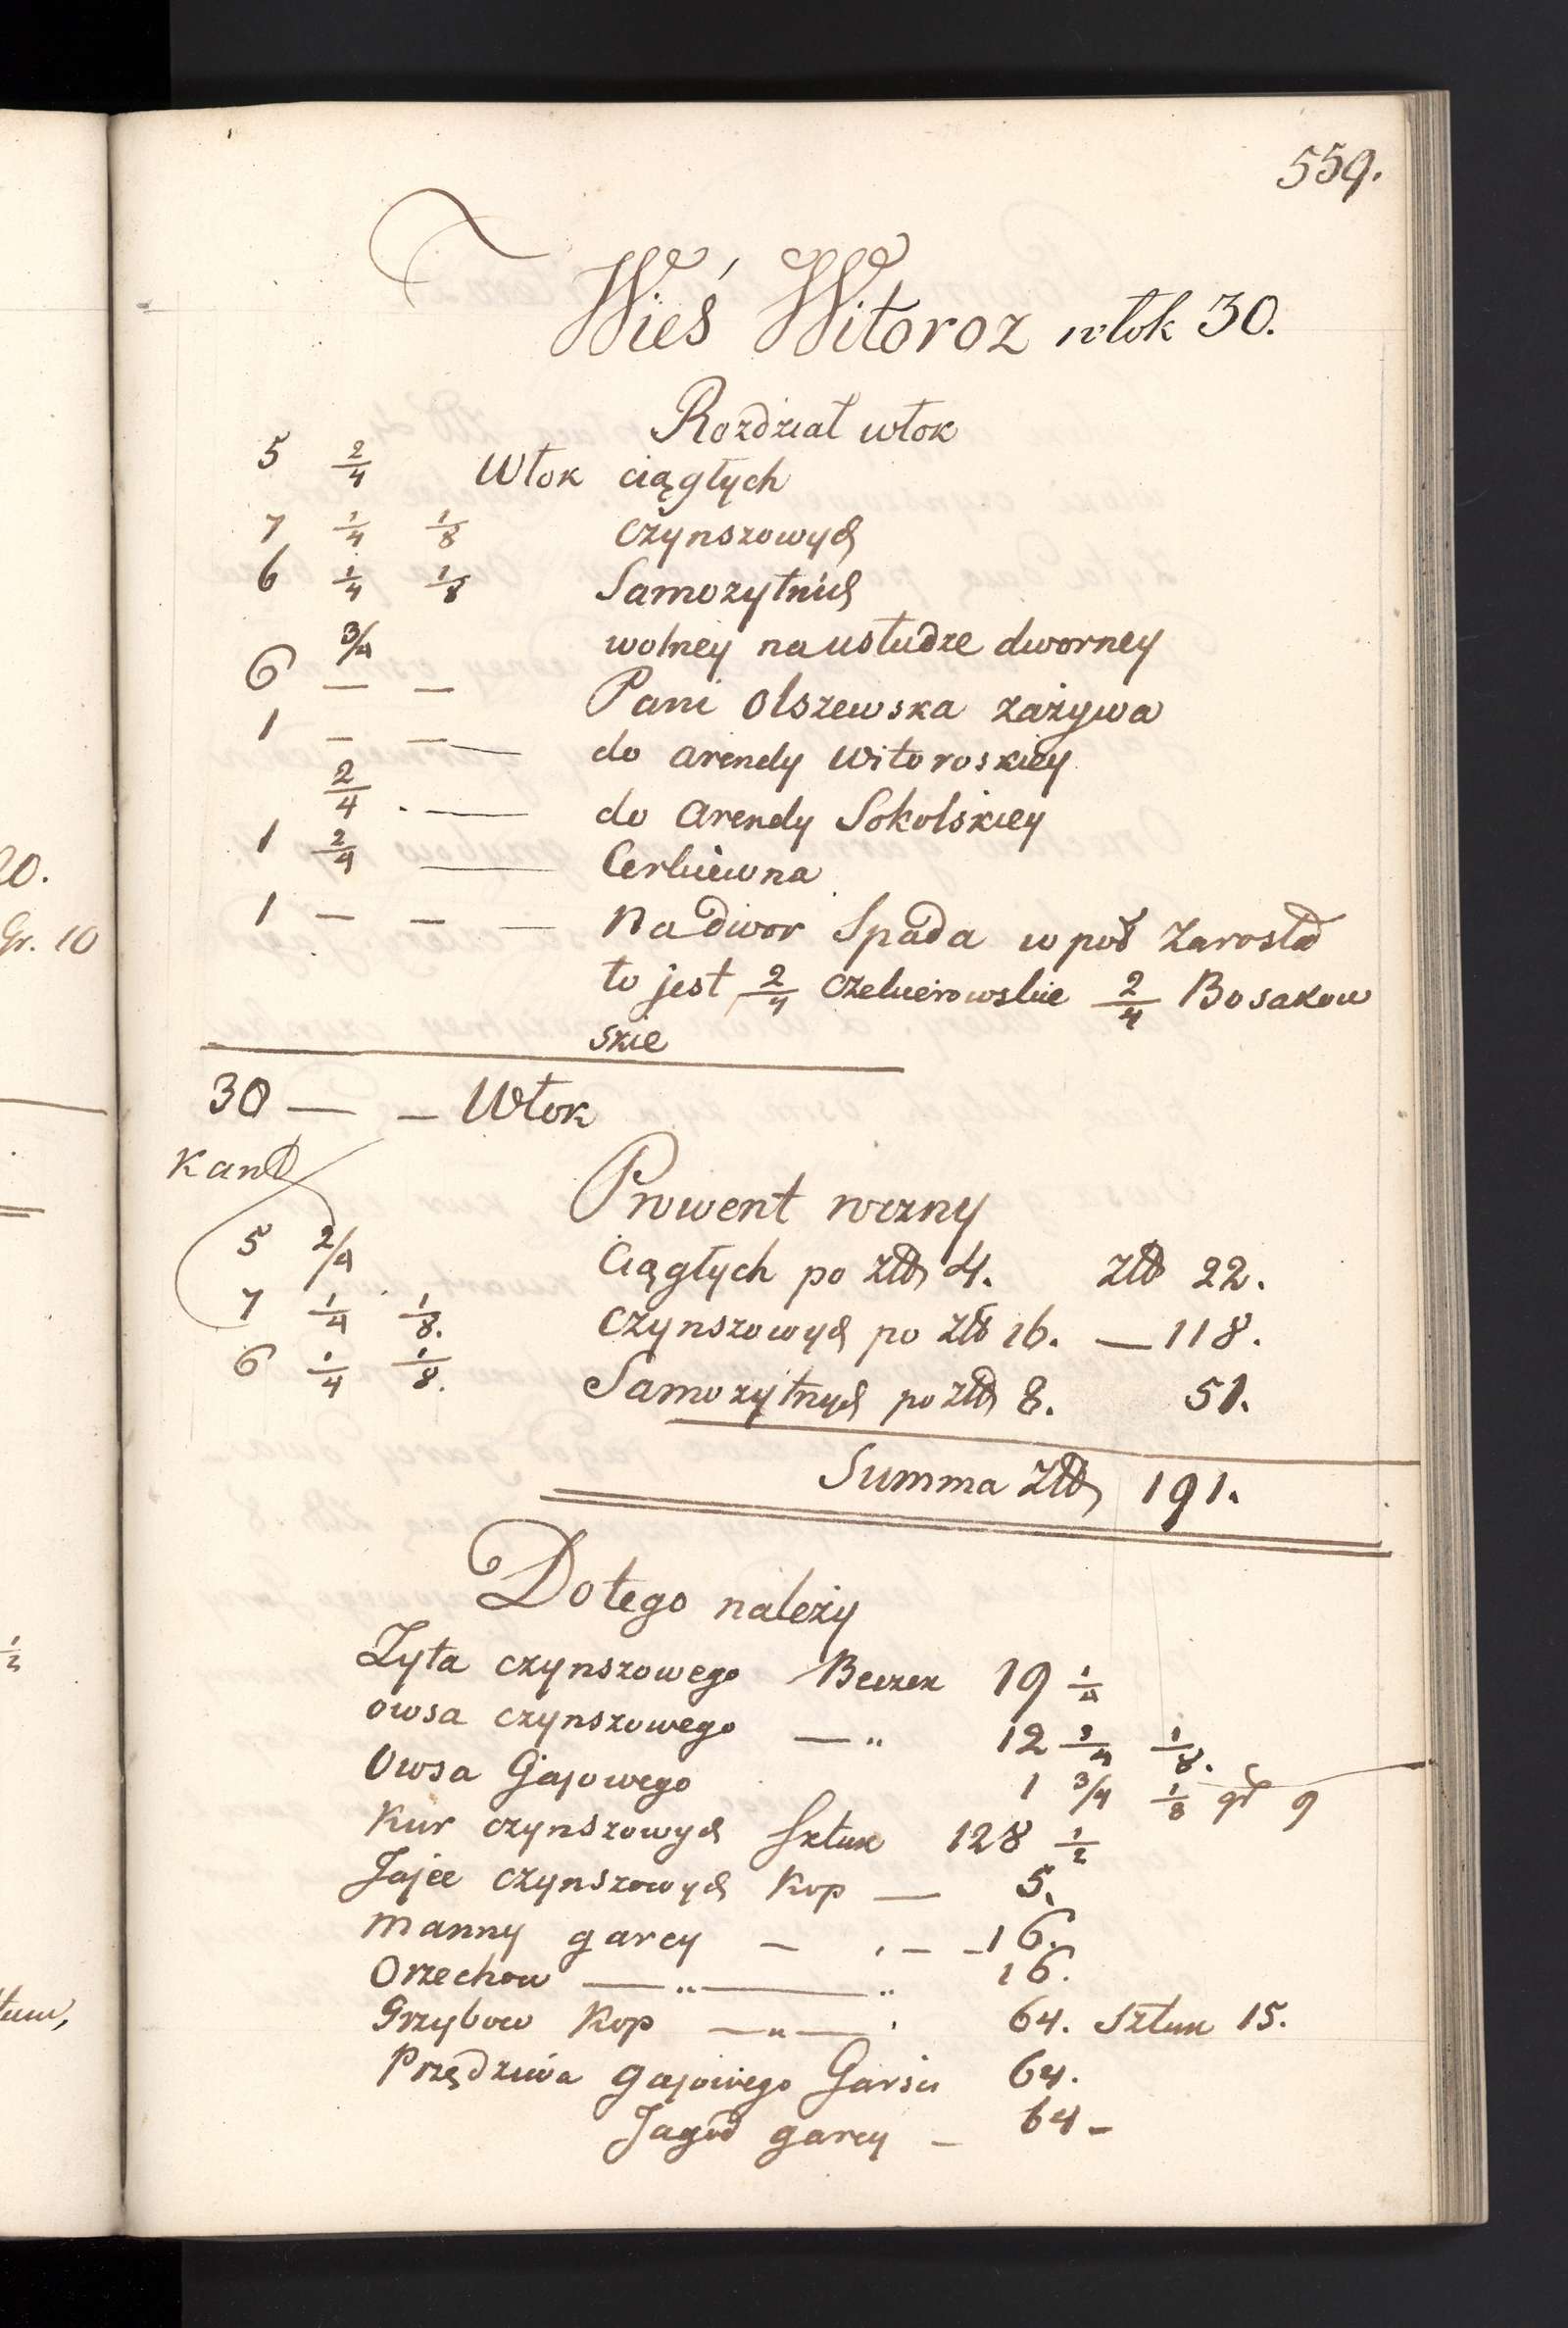 559.
Wieś Witoroz włok 30.
Rozdział włok
5 2/4 Włok ciągłych
7 1/4 1/8 czynszowych
6 1/4 1/8 Samozytnich
3/4 wolney na usłudze dworney
6 — — Pani Olszewska zażywa
1 — — — do arendy Witoroskiey
2/4 . — do Arendy Sokolskiey
1 2/4 — Cerkiewna
1 — — — Na dwor Spada w poł Zarosła
to jest 2/4 2/4 Bosakow
skie
30 — — Włok
Prowent roczny
5 2/4 Ciągłych po złł 4. złł 22.
7 1/4 1/8. czynszowych po złł 16. — 118.
6 1/4 1/8. Samozytnych po złł 8. 51.
Summa złł 191.
Do tego należy
Zyta czynszowego Beczek 19 1/4
owsa czynszowego — „ 12 3/4 1/8.
Owsa Gajowego 1 3/4 1/8 gr 9
Kur czynszowych Sztuk 128 1/2
Jajec czynszowych Kop — 5.
Manny garcy — . — — 16.
Orzechow — „ — „ 16.
Grzybow Kop — „ — . 64. Sztuk 15.
Przędziwa Gajowego Garsci 64.
Jagod garcy — 64 —
20.
Gr. 10
1/2